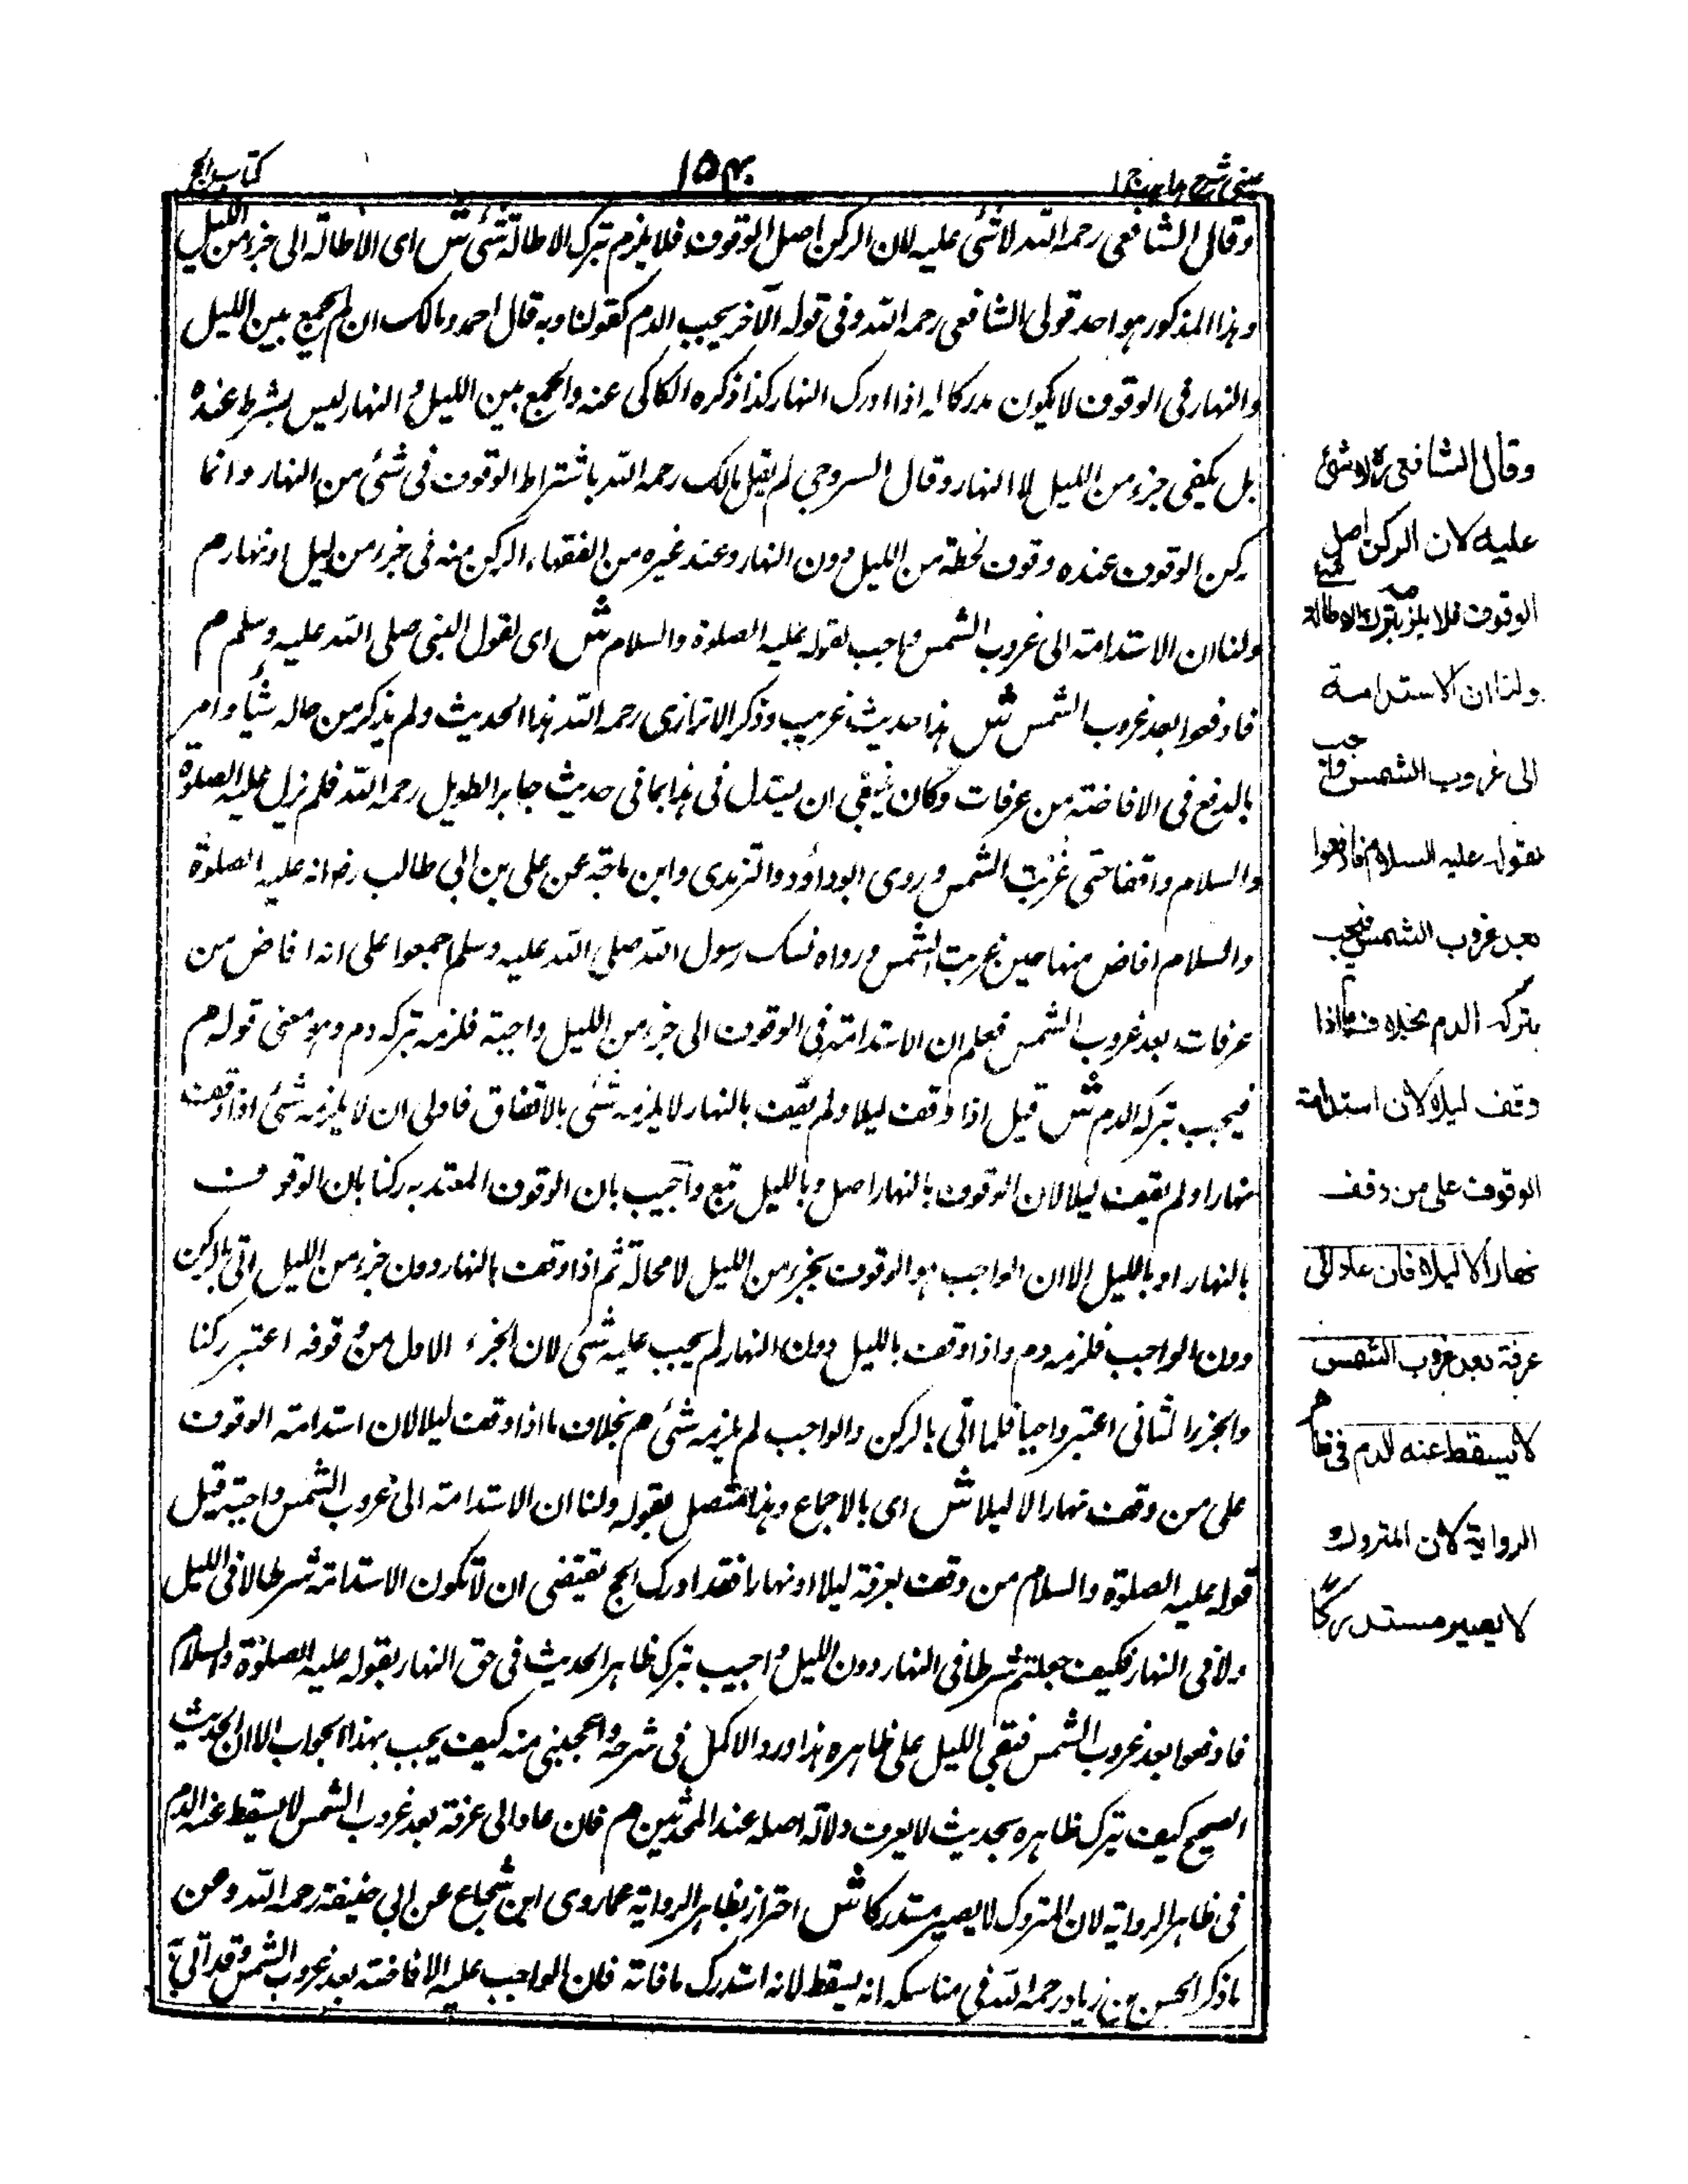 عینی شرح ہدایہ ج ۱
۱۵۴۰
کتاب الحج
وقال الشافعی رحمہ اللہ لاشئی علیہ لان الرکن اصل الوقوف فلا یلزم بترک الاطالة شئی ش ای الاطالہ الی جزء من اللیل
وہذا المذکور ہو احد قولی الشافعی رحمہ اللہ وفی قولہ الآخر یجب الدم کقولنا وبہ قال احمد ومالک ان لم یجمع بین اللیل
والنہار فی الوقوف لا یکون مدرکا لہ اذا ادرک النہار کذا ذکرہ الکاکی عنہ والجمع بین اللیل والنہار لیس بشرط عندہ
بل یکفی جزء من اللیل لا النہار وقال السروجی لم یقل مالک رحمہ اللہ باشتراط الوقوف فی شئی من النہار وانما
رکن الوقوف عندہ وقوف لحظة من اللیل دون النہار وعند غیرہ من الفقہاء الرکن منہ فی جزء من لیل او نہار م
ولنا ان الاستدامة الی غروب الشمس واجب لقولہ علیہ الصلوة والسلام ش ای لقول النبی صلی اللہ علیہ وسلم م
فادفعوا بعد غروب الشمس ش ہذا حدیث غریب وذکر الاترازی رحمہ اللہ ہذا الحدیث ولم یذکر من حالہ شیأ وامر
بالدفع فی الافاضة من عرفات وکان ینبغی ان یستدل فی ہذا بما فی حدیث جابر الطویل رحمہ اللہ فلم یزل علیہ الصلوة
والسلام واقفا حتی غربت الشمس وروی ابوداؤد والترمذی وابن ماجة عن علی بن ابی طالب رض انہ علیہ الصلوة
والسلام افاض منہا حین غربت الشمس ورواہ نسک رسول اللہ صلی اللہ علیہ وسلم اجمعوا علی انہ افاض من
عرفات بعد غروب الشمس فعلم ان الاستدامة فی الوقوف الی جزء من اللیل واجبة فلزمہ بترکہ دم وہو معنی قولہ م
فیجب بترکہ الدم ش قیل اذا وقف لیلا ولم یقف بالنہار لا یلزمہ شئی بالاتفاق فاولی ان لا یلزمہ شئی اذا وقف
نہارا ولم یقف لیلا لان الوقوف بالنہار اصل وباللیل تبع واجیب بان الوقوف المعتد بہ رکنا بان الوقوف
بالنہار او باللیل الا ان الواجب ہو الوقوف بجزء من اللیل لامحالة ثم اذا وقف بالنہار دون جزء من اللیل اتی بالرکن
دون الواجب فلزمہ دم واذا وقف باللیل دون النہار لم یجب علیہ شئی لان الجزء الاول من وقوفہ اعتبر رکنا
والجزء الثانی اعتبر واجبا فلما اتی بالرکن والواجب لم یلزمہ شئی م بخلاف ما اذا وقف لیلا لان استدامة الوقوف
علی من وقف نہارا لا لیلا ش ای بالاجماع وہذا متصل بقولہ ولنا ان الاستدامة الی غروب الشمس واجبة قیل
قولہ علیہ الصلوة والسلام من وقف بعرفة لیلا او نہارا فقد ادرک الحج یقتضی ان لا تکون الاستدامة شرطا لا فی اللیل
ولا فی النہار فکیف جعلتم شرطا فی النہار دون اللیل واجیب بترک ظاہر الحدیث فی حق النہار بقولہ علیہ الصلوة والسلام
فادفعوا بعد غروب الشمس فبقی اللیل علی ظاہرہ ہذا ورد الاکمل فی شرحہ واعجبنی منہ کیف یجیب بہذا الجواب لان الحدیث
الصحیح کیف یترک ظاہرہ بحدیث لا یعرف ولالہ اصلہ عند المحدثین م فان عاد الی عرفة بعد غروب الشمس لا یسقط عنہ الدم
فی ظاہر الروایة لان المتروک لا یصیر مستدرکا ش احترز بظاہر الروایة عما روی ابن شجاع عن ابی حنیفة رحمہ اللہ وعن
ما ذکر الحسن بن زیاد رحمہ اللہ فی مناسکہ انہ یسقط لانہ استدرک ما فاتہ فان الواجب علیہ الافاضة بعد غروب الشمس وقد اتی بہ
وقال الشافعی رح لا شئ
علیه لان الرکن اصل
الوقوف فلا یلزم بترک الاطالة
ولنا ان الاستدامة
الی غروب الشمس واجب
لقوله علیه السلام فادفعوا
بعد غروب الشمس فیجب
بترکه الدم بخلاف ما اذا
وقف لیلا لان استدامة
الوقوف علی من وقف
نهارا لا لیلا فان عاد الی
عرفة بعد غروب الشمس
لا یسقط عنه الدم فی ظاهر
الروایة لان المتروک
لا یصیر مستدرکا